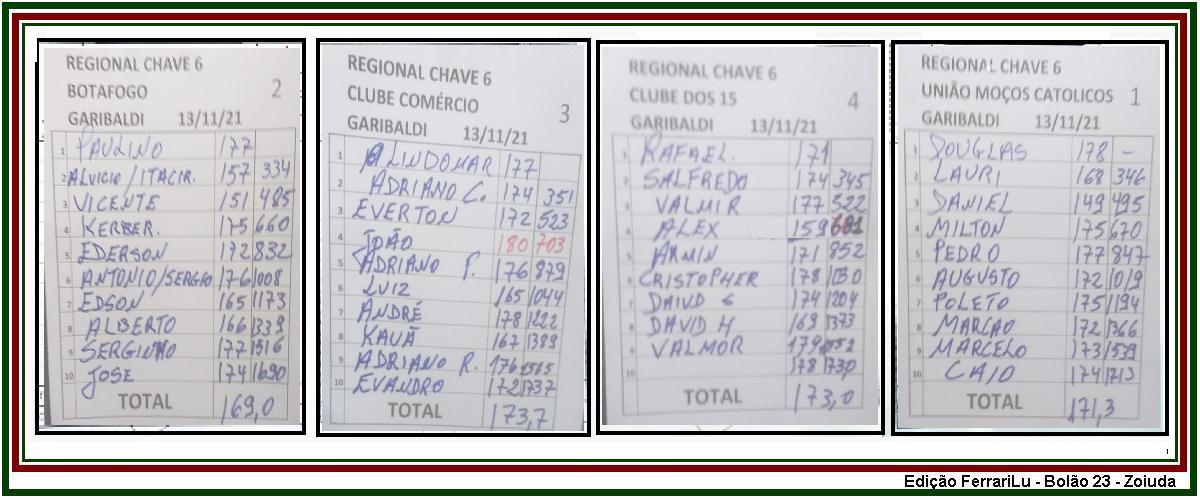 REGIONAL CHAVE 6
BOTAFOGO 2
GARIBALDI 13/11/21
1 PAULINO 177
2 ALVICIO/ITACIR. 157 334
3 VICENTE 151 485
4 KERBER. 175 660
5 EDERSON 172 832
6 ANTONIO/SERGIO 176 1008
7 EDSON 165 1173
8 ALBERTO 166 1339
9 SERGINHO 177 1516
10 JOSE 174 1690
TOTAL 169,0
REGIONAL CHAVE 6
CLUBE COMÉRCIO 3
GARIBALDI 13/11/21
1 LINDOMAR 177
2 ADRIANO C. 174 351
3 EVERTON 172 523
4 JOÃO 180 703
5 ADRIANO P. 176 879
6 LUIZ 165 1044
7 ANDRÉ 178 1222
8 KAUÃ 167 1389
9 ADRIANO R. 176 1565
10 EVANDRO 172 1737
TOTAL 173,7
REGIONAL CHAVE 6
CLUBE DOS 15 4
GARIBALDI 13/11/21
1 RAFAEL. 171
2 SALFREDO 174 345
3 VALMIR 177 522
4 ALEX 159 681
5 ARMIN 171 852
6 CRISTOPHER 178 1030
7 DAIVD S 174 1204
8 DAVID H 169 1373
9 VALMOR 179 1552
10 178 1730
TOTAL 173,0
REGIONAL CHAVE 6
UNIÃO MOÇOS CATOLICOS 1
GARIBALDI 13/11/21
1 DOUGLAS 178 -
2 LAURI 168 346
3 DANIEL 149 495
4 MILTON 175 670
5 PEDRO 177 847
6 AUGUSTO 172 1019
7 POLETO 175 1194
8 MARCAO 172 1366
9 MARCELO 173 1539
10 CAIO 174 1713
TOTAL 171,3
Edição FerrariLu - Bolão 23 - Zoiuda